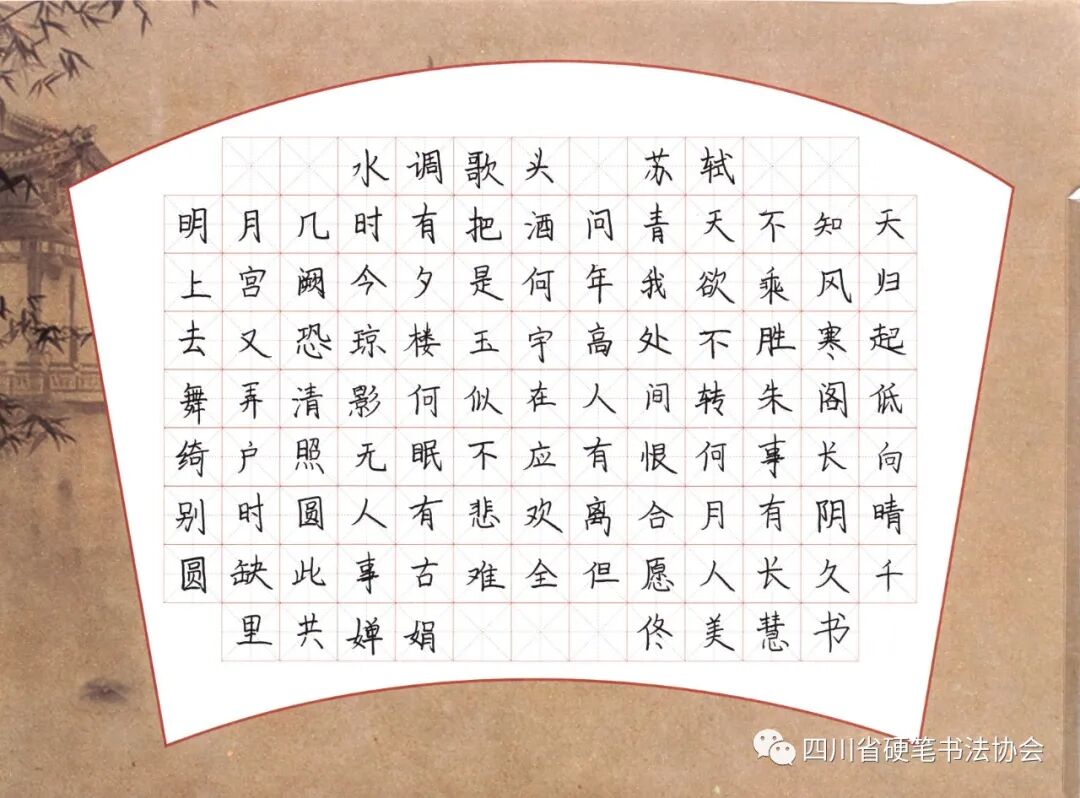 水调歌头 苏轼
明月几时有把酒问青天不知天
上宫阙今夕是何年我欲乘风归
去又恐琼楼玉宇高处不胜寒起
舞弄清影何似在人间转朱阁低
绮户照无眠不应有恨何事长向
别时圆人有悲欢离合月有阴晴
圆缺此事古难全但愿人长久千
里共婵娟 佟美慧书
四川省硬笔书法协会